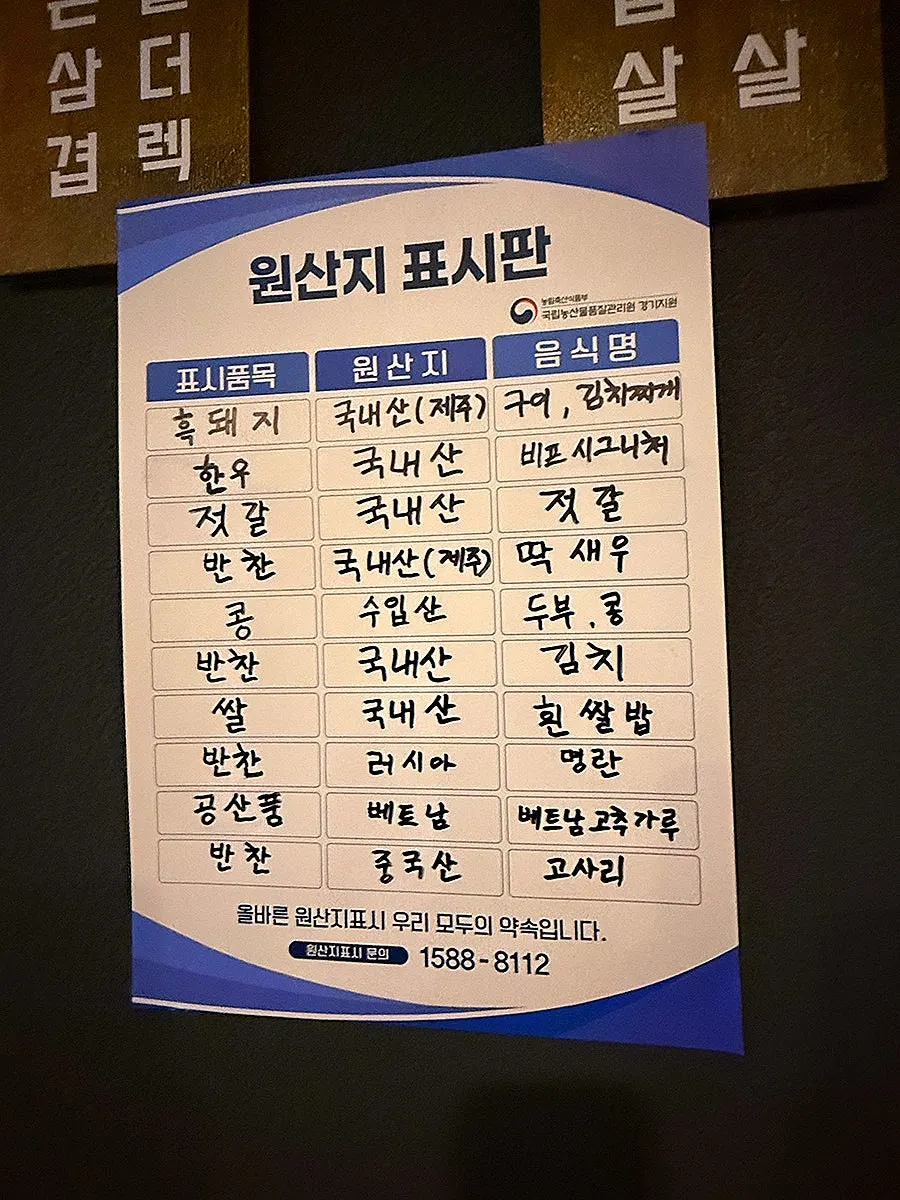 삼 더
겹 렉
살 살
원산지 표시판
농림축산식품부
국립농산물품질관리원 경기지원
표시품목 원산지 음식명
흑돼지 국내산(제주) 구이, 김치찌개
한우 국내산 비프시그니처
젓갈 국내산 젓갈
반찬 국내산(제주) 딱새우
콩 수입산 두부, 콩
반찬 국내산 김치
쌀 국내산 흰쌀밥
반찬 러시아 명란
공산품 베트남 베트남고추가루
반찬 중국산 고사리
올바른 원산지표시 우리 모두의 약속입니다.
원산지표시 문의 1588-8112